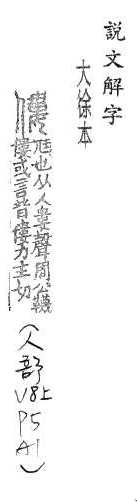 說文解字
大徐本
僂 尫也从人婁聲周公韤
僂或言背僂力主切
(人部 V8上 P5 A1)